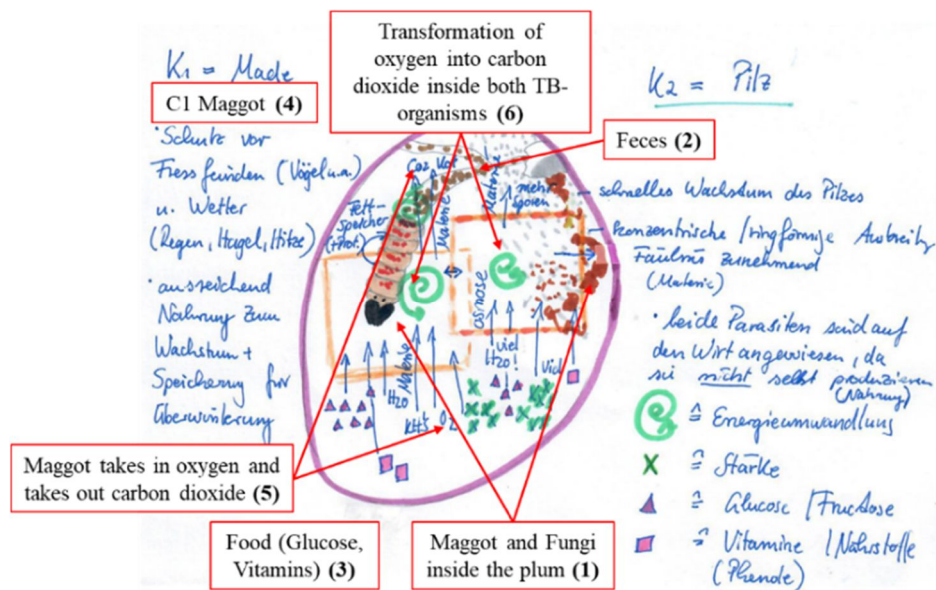 Transformation of
oxygen into carbon
dioxide inside both TB-
organisms (6)
K1 = Made
C1 Maggot (4)
K2 = Pilz
Feces (2)
• Schutz vor
Fressfeinden (Vögel u.a.)
u. Wetter
(Regen, Hagel, Hitze)
• ausreichend
Nahrung zum
Wachstum +
Speicherung für
Überwinterung
Materie
mehr
Sporen
Fett-
speicher
Materie
osmose
H2O
Materie
viel
H2O!
viel
O2
schnelles Wachstum des Pilzes
konzentrische / ringförmige Ausbreitg
Fäulnis zunehmend
(Materie)
• beide Parasiten sind auf
den Wirt angewiesen, da
sie nicht selbst produzieren
(Nahrung)
≙ Energieumwandlung
≙ Stärke
≙ Glucose / Fructose
≙ Vitamine / Nährstoffe
Maggot takes in oxygen and
takes out carbon dioxide (5)
Food (Glucose,
Vitamins) (3)
Maggot and Fungi
inside the plum (1)